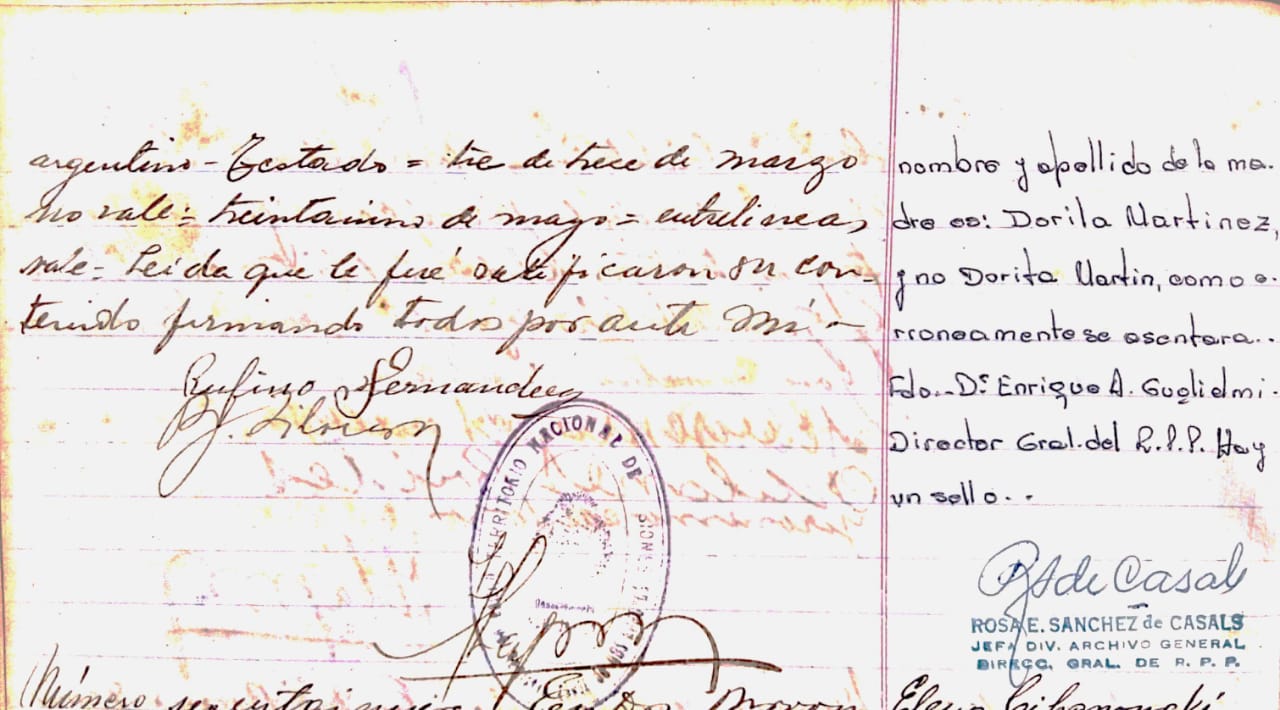 argentino - Testado = tre de trece de marzo
no vale = treintaiuno de mayo = entrelineas,
vale - Leida que le fué ratificaron su con-
tenido firmando todos por ante mi -
Rufino Fernandez
TERRITORIO NACIONAL DE
SIONES
Número
nombre y apellido de la ma-
dre es: Dorila Martinez,
y no Dorita Martin, como e-
rroneamente se asentara..
Fdo.. Dr. Enrique A. Guglielmi -
Director Gral. del R.P.P. Hay
un sello..
RS de Casals
ROSA E. SANCHEZ de CASALS
JEFA DIV. ARCHIVO GENERAL
DIRECC. GRAL. DE R. P. P.
Elena